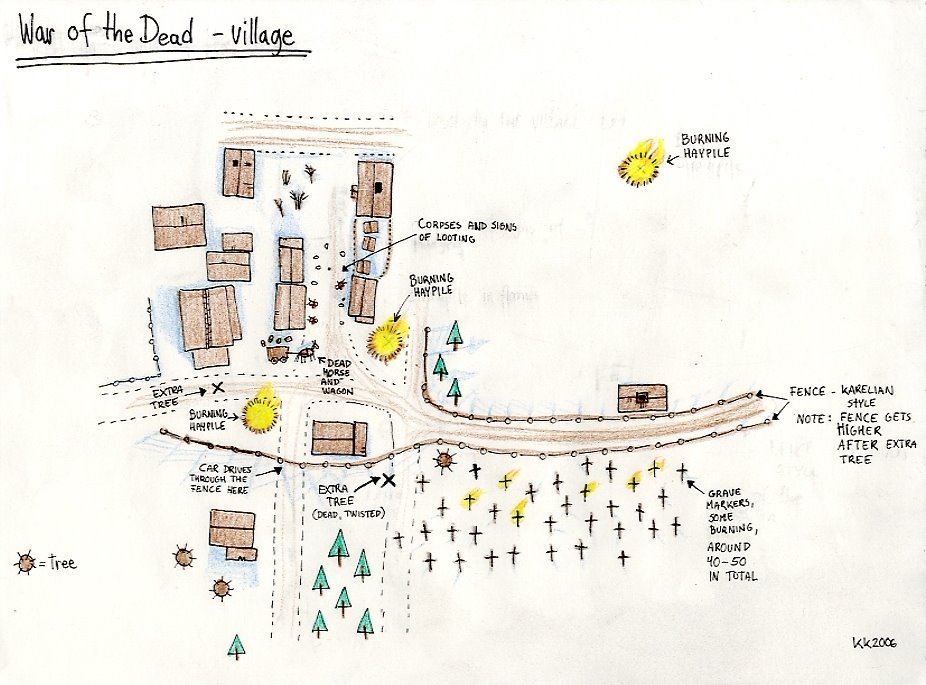 War of the Dead - village
BURNING
HAYPILE
CORPSES AND SIGNS
OF LOOTING
BURNING
HAYPILE
DEAD
HORSE
AND
WAGON
EXTRA
TREE
BURNING
HAYPILE
FENCE - KARELIAN
STYLE
NOTE: FENCE GETS
HIGHER
AFTER EXTRA
TREE
CAR DRIVES
THROUGH THE
FENCE HERE
EXTRA
TREE
(DEAD, TWISTED)
GRAVE
MARKERS,
SOME
BURNING,
AROUND
40-50
IN TOTAL
= tree
KK2006